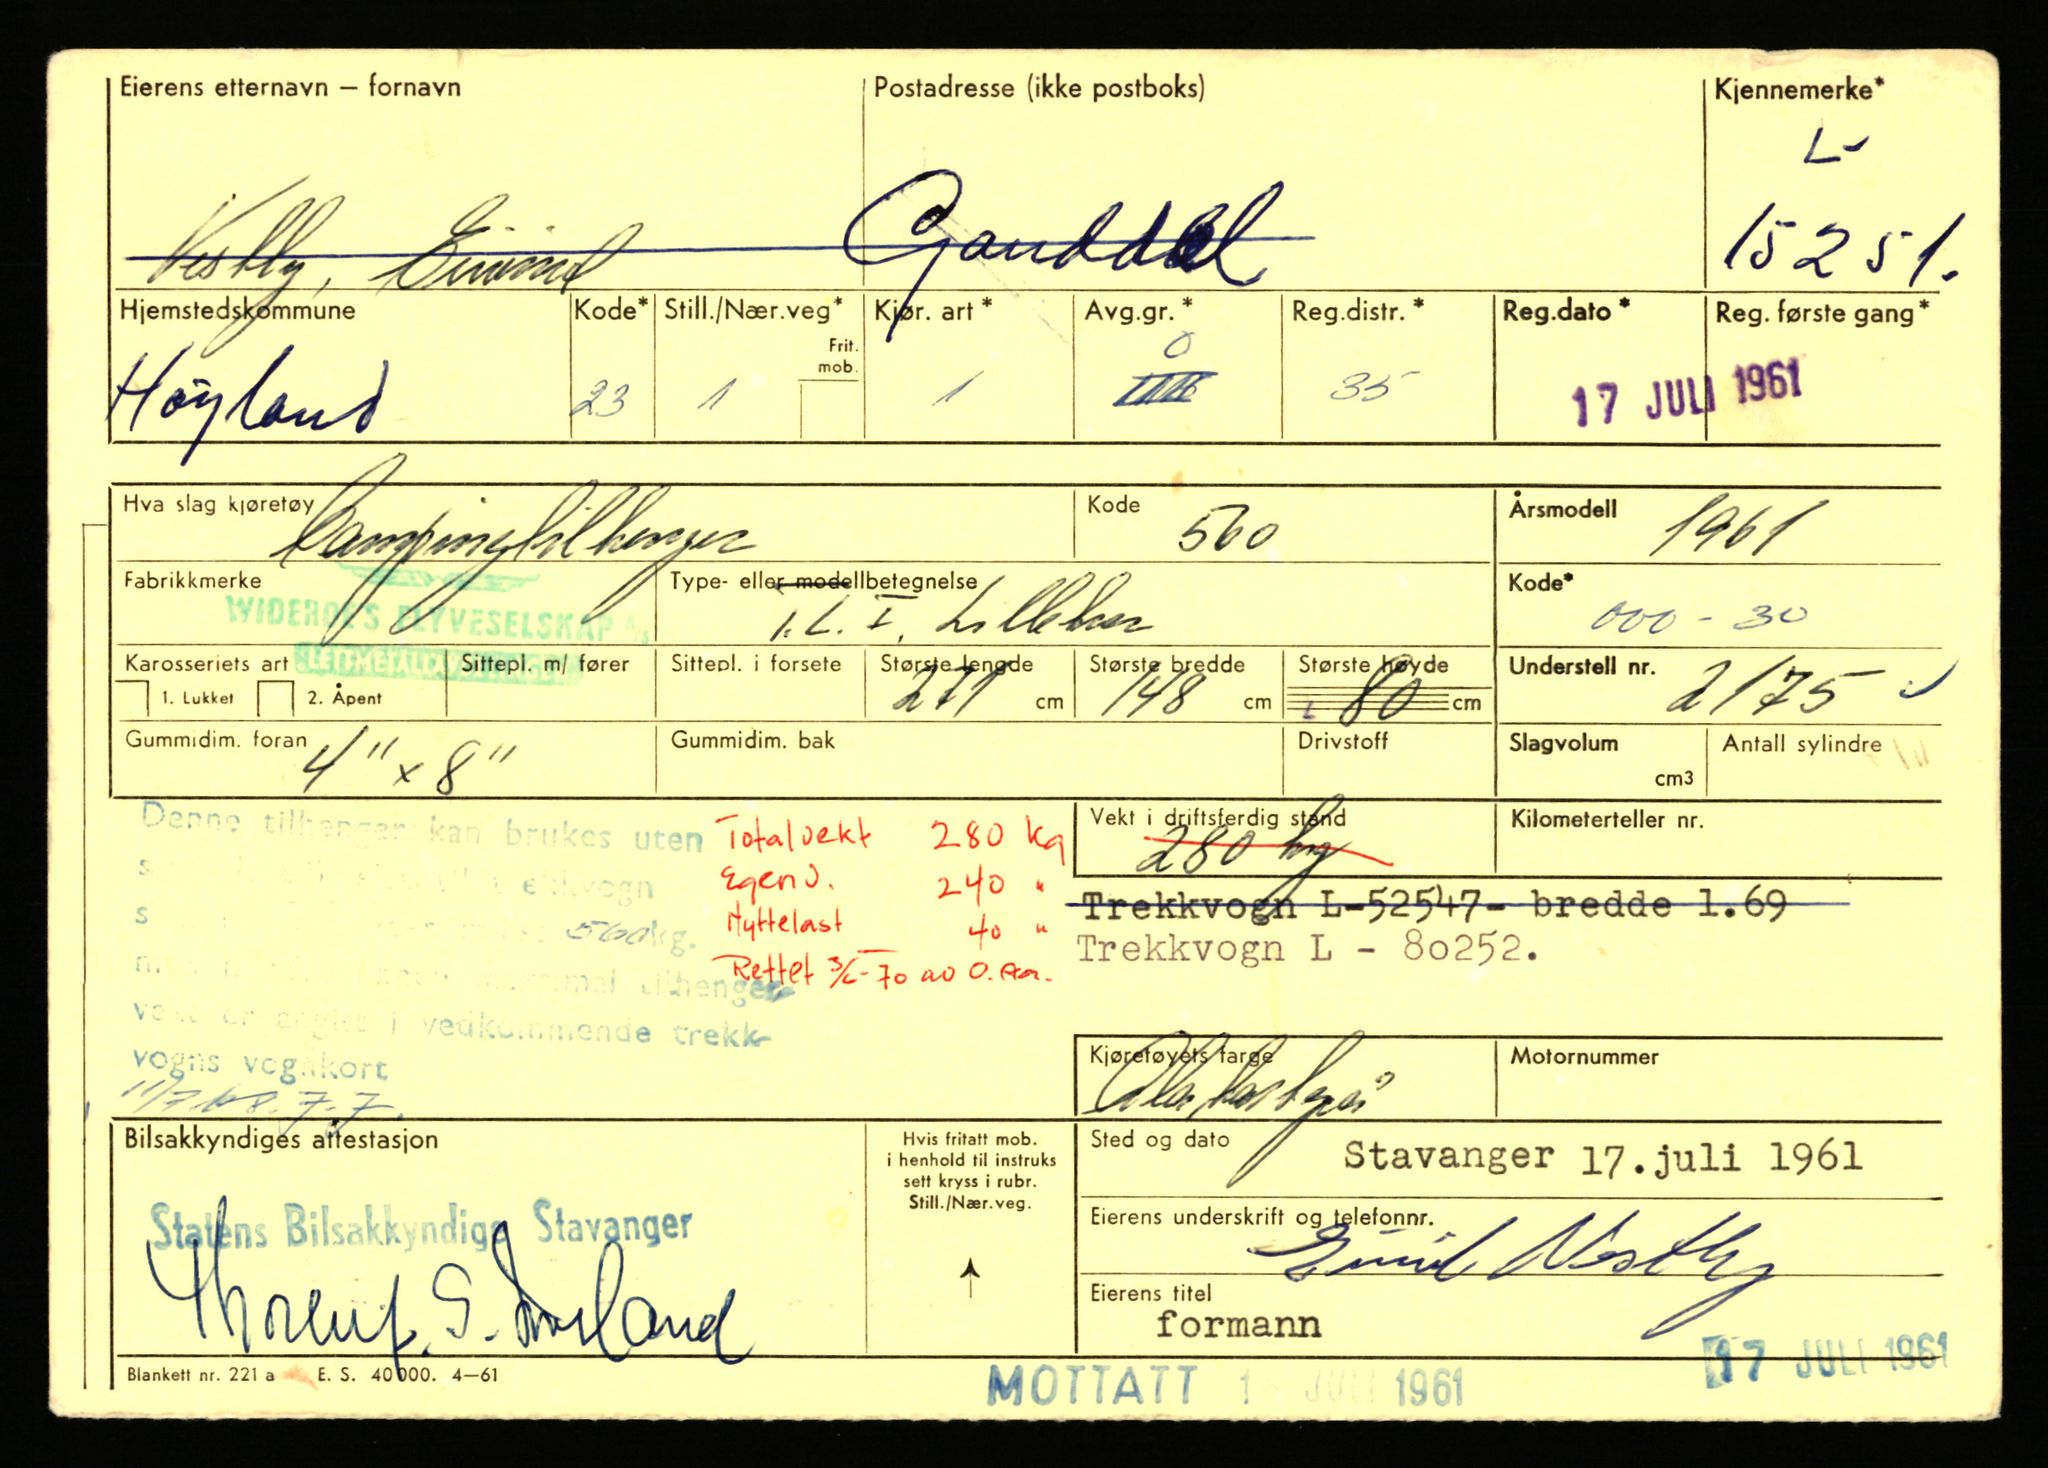 Eierens etternavn – fornavn
Postadresse (ikke postboks)
Kjennemerke*
L-
Vestby, Eivind
Ganddal
15251.
Hjemstedskommune
Kode*
Still./Nær.veg*
Kjør. art*
Avg.gr.*
Reg.distr.*
Reg.dato*
Reg. første gang*
Frit.
mob.
0
Høyland
23
1
1
35
17 JULI 1961
Hva slag kjøretøy
Campingtilhenger
Kode
560
Årsmodell
1961
Fabrikkmerke
WIDERØE'S FLYVESELSKAP A/S
LETTMETALLAVDELINGEN
Type- eller modellbetegnelse
T.L.I. Lillebror
Kode*
000 - 30
Karosseriets art
1. Lukket
2. Åpent
Sittepl. m/ fører
Sittepl. i forsete
Største lengde
271 cm
Største bredde
148 cm
Største høyde
80 cm
Understell nr.
2175
Gummidim. foran
4" x 8"
Gummidim. bak
Drivstoff
Slagvolum
cm3
Antall sylindre
Denne tilhenger kan brukes uten
560 kg.
tilhenger-
vekt er angitt i vedkommende trekk-
vogns vognkort
Totalvekt 280 kg
Egenv. 240 "
Nyttelast 40 "
Rettet
Vekt i driftsferdig stand
280 kg
Kilometerteller nr.
Trekkvogn L-52547- bredde 1.69
Trekkvogn L - 80252.
Kjøretøyets farge
Motornummer
Bilsakkyndiges attestasjon
Statens Bilsakkyndige Stavanger
Hvis fritatt mob.
i henhold til instruks
sett kryss i rubr.
Still./Nær.veg.
Sted og dato
Stavanger 17.juli 1961
Eierens underskrift og telefonnr.
Eivind Vestby
Eierens titel
formann
17 JULI 1961
Blankett nr. 221 a E. S. 40 000. 4–61
MOTTATT 1 JULI 1961